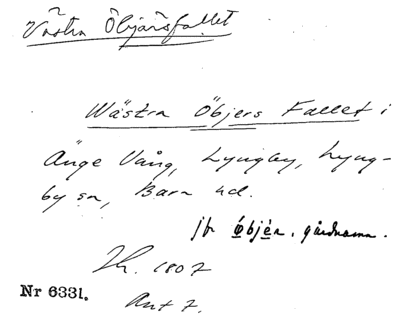 Västra Öbjärsfallet
Wästra Öbjers Fallet i
Änge Vång, Lyngby, Lyng-
by sn, Bara hd.
jfr Öbjér, gårdnamn.
1807
Nr 6331.
Akt 7.